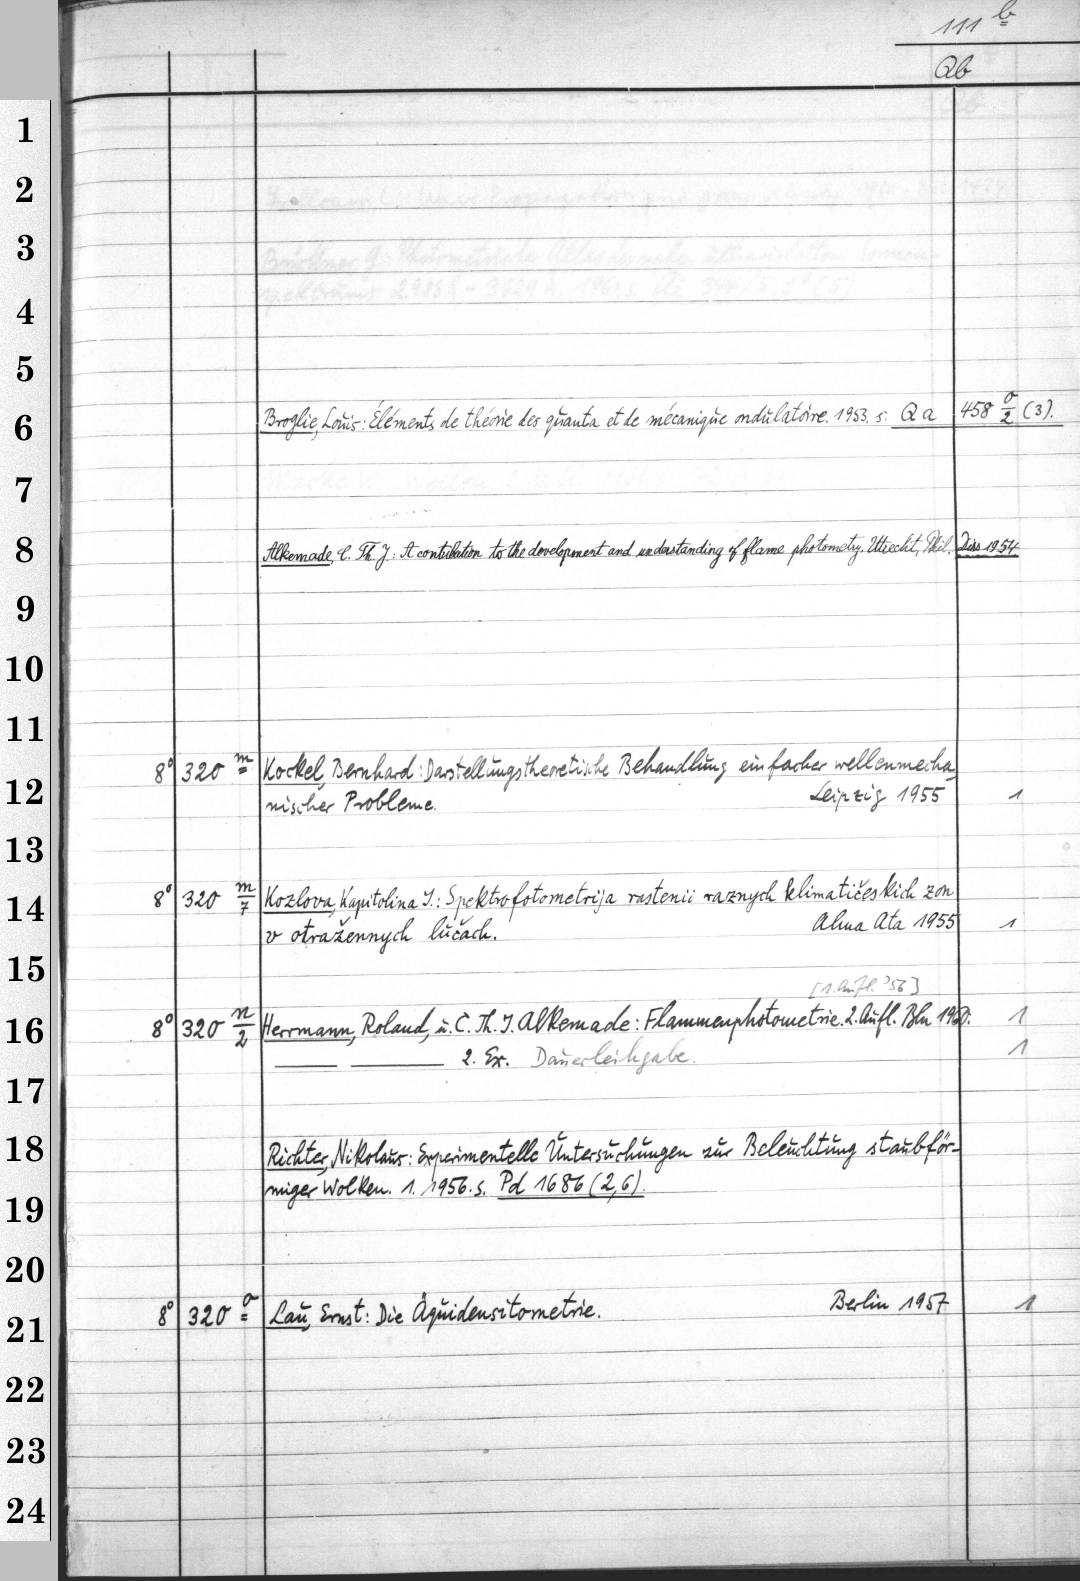 111 b
Qb
1
2
3
4
5
6 Broglie, Louis: Éléments de théorie des quanta et de mécanique ondulatoire. 1953. s. Qa 458 o/2 (3).
7
8 Alkemade, C. Th. J.: A contribution to the development and understanding of flame photometry. Utrecht, Phil. Diss 1954
9
10
11
8° 320 m Kockel, Bernhard: Darstellungstheoretische Behandlung einfacher wellenmecha-
12 nischer Probleme. Leipzig 1955 1
13
8° 320 m/7 Kozlova, Kapitolina I.: Spektrofotometrija rastenii raznych klimatičeskich zon
14 v otražennych lučach. Alma Ata 1955 1
15
[1. Aufl. '56]
16 8° 320 n/2 Herrmann, Roland, u. C. Th. J. Alkemade: Flammenphotometrie. 2. Aufl. Bln 1960. 1
2. Ex. Dauerleihgabe. 1
17
18 Richter, Nikolaus: Experimentelle Untersuchungen zur Beleuchtung staubför-
19 miger Wolken. 1. 1956. s. Pd 1686 (2,6).
20
21 8° 320 o Lau, Ernst: Die Äquidensitometrie. Berlin 1957 1
22
23
24